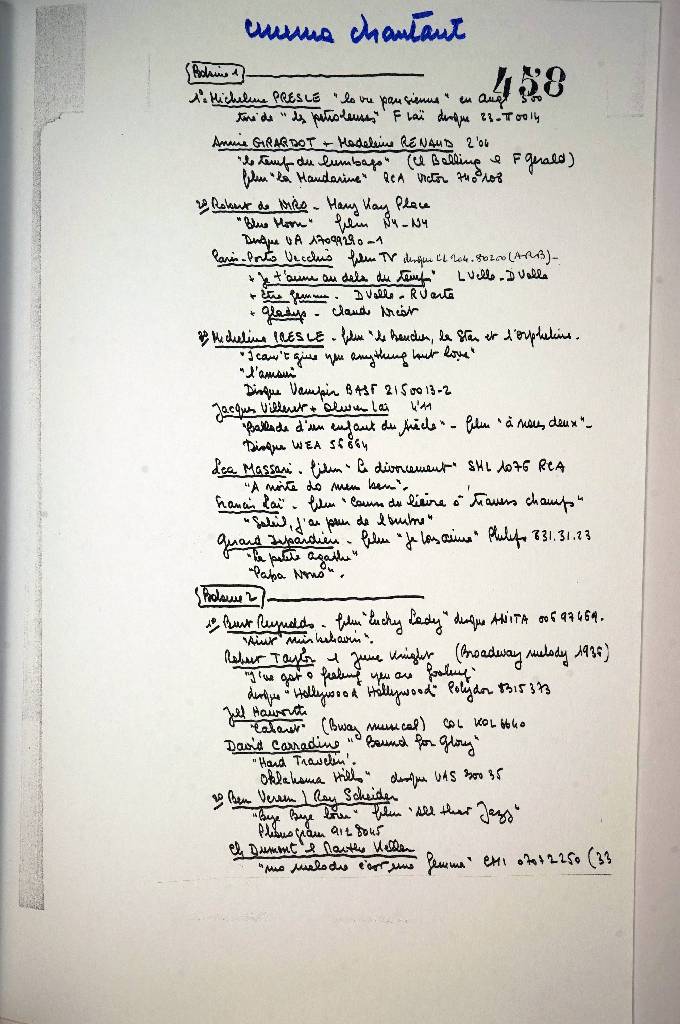 cinema chantant
458
Bobine 1
1º Micheline PRESLE "la vie parisienne" en angl 3'00
tiré de "les petroleuses" F Laï disque 23-T0014
Annie GIRARDOT + Madeleine RENAUD 2'06
"le temps du lumbago" (Cl Bolling e F Gerald)
film "la Mandarine" RCA Victor 740108
2º Robert de NIRO - Mary Kay Place
"Blue Moon" film NY-NY
Disque UA 17099290-1
Paris-Porto Vecchio film TV disque CL 204.80200 (A-R-B)-
+ Je t'aime au dela du temps" L Vella - D Vallo
+ Etre femme - D Vallo - R Varta
+ Gladys - Claude
3º Micheline PRESLE - film "le boucher, la Star et l'orpheline.
"I can't give you anything but love"
"l'amour"
Disque Vampir BASF 2150013-2
Jacques Villeret + Olivier Laï 4'11
"Ballade d'un enfant du siècle" - film "à nous deux"-
Disque WEA 56664
Lea Massari - film "Le divorcement" SHL 1076 RCA
"A noite do meu bem".
Francis Laï - film "Course du lièvre à travers champs"
"Soleil, j'ai peur de l'ombre"
Gerard Depardieu - film "Je vous aime" Philips 631.31.23
"La petite agathe"
"Papa Nono".
Bobine 2
1º Burt Reynolds - film "Lucky Lady" disque ARISTA 006 97469.
"Aint' misbehavin".
Robert Taylor e June Knight (Broadway melody 1936)
"I've got a feeling you are fooling"
disque "Hollywood Hollywood" Polydor 8315373
Jill Haworth
"Cabaret" (Bway musical) COL KOL 6640
David Carradine "Bound for Glory"
"Hard Travelin'.
Oklahoma Hills" disque UAS 30035
2º Ben Vereen / Roy Scheider
"Bye Bye love" film "All that Jazz"
Phonogram 9128045
Ch Dumont e Marthe Keller
"une melodie c'est une femme" EMI 07072250 (33